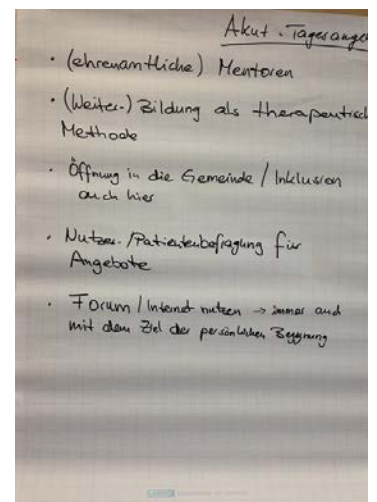 Akut-Tagesange
• (ehrenamtliche) Mentoren
• (Weiter-) Bildung als therapeutisch
Methode
• Öffnung in die Gemeinde / Inklusion
auch hier
• Nutzer-/Patientenbefragung für
Angebote
• Forum / Internet nutzen → immer auch
mit dem Ziel der persönlichen Begegnung